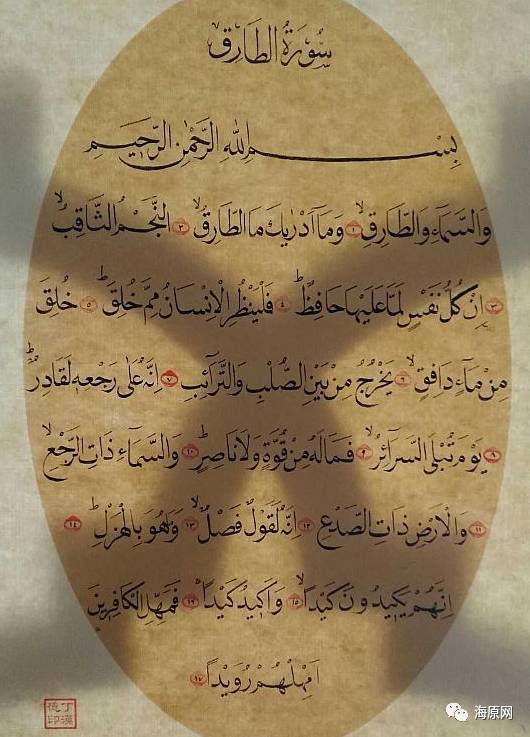 سُورَةُ الطَّارِقِ
بِسْمِ اللهِ الرَّحْمٰنِ الرَّحِيمِ
وَالسَّمَاءِ وَالطَّارِقِ ١ وَمَا اَدْرٰيكَ مَا الطَّارِقُ ٢ النَّجْمُ الثَّاقِبُ
٣ اِنْ كُلُّ نَفْسٍ لَمَّا عَلَيْهَا حَافِظٌ ٤ فَلْيَنْظُرِ الْاِنْسَانُ مِمَّ خُلِقَ ٥ خُلِقَ
مِنْ مَاءٍ دَافِقٍ ٦ يَخْرُجُ مِنْ بَيْنِ الصُّلْبِ وَالتَّرَآئِبِ ٧ اِنَّهُ عَلٰى رَجْعِهِ لَقَادِرٌ
٨ يَوْمَ تُبْلَى السَّرَآئِرُ ٩ فَمَا لَهُ مِنْ قُوَّةٍ وَلَا نَاصِرٍ ١٠ وَالسَّمَاءِ ذَاتِ الرَّجْعِ
١١ وَالْاَرْضِ ذَاتِ الصَّدْعِ ١٢ اِنَّهُ لَقَوْلٌ فَصْلٌ ١٣ وَهُوَ بِالْهَزْلِ ١٤
اِنَّهُمْ يَكِيدُونَ كَيْدًا ١٥ وَاَكِيدُ كَيْدًا ١٦ فَمَهِّلِ الْكَافِرِينَ
اَمْهِلْهُمْ رُوَيْدًا ١٧
丁漢德印
海原网